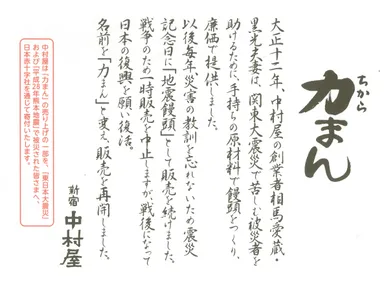 ちから
力まん
大正十二年、中村屋の創業者相馬愛蔵・
黒光夫妻は、関東大震災で苦しむ被災者を
助けるために、手持ちの原材料で饅頭をつくり、
廉価で提供しました。
以後毎年災害の教訓を忘れないため震災
記念日に「地震饅頭」として販売を続けました。
戦争のため一時販売を中止しますが、戦後になって
日本の復興を願い復活。
名前を「力まん」と変え、販売を再開しました。
新宿 中村屋
中村屋は「力まん」の売り上げの一部を、「東日本大震災」
および「平成28年熊本地震」で被災された皆さまへ、
日本赤十字社を通じて寄付いたします。